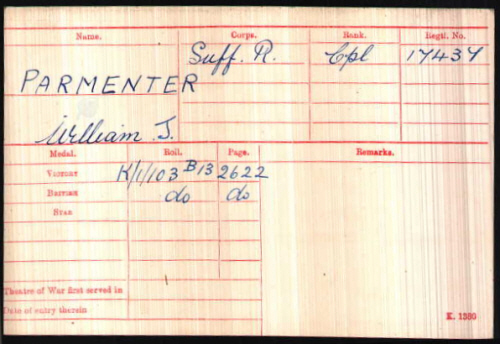 Name. Corps. Rank. Regtl. No.
Suff. R. Cpl 17437
PARMENTER
William J.
Medal. Roll. Page. Remarks.
Victory K/1/103 B13 2622
British do do
Star
Theatre of War first served in
Date of entry therein
K. 1380